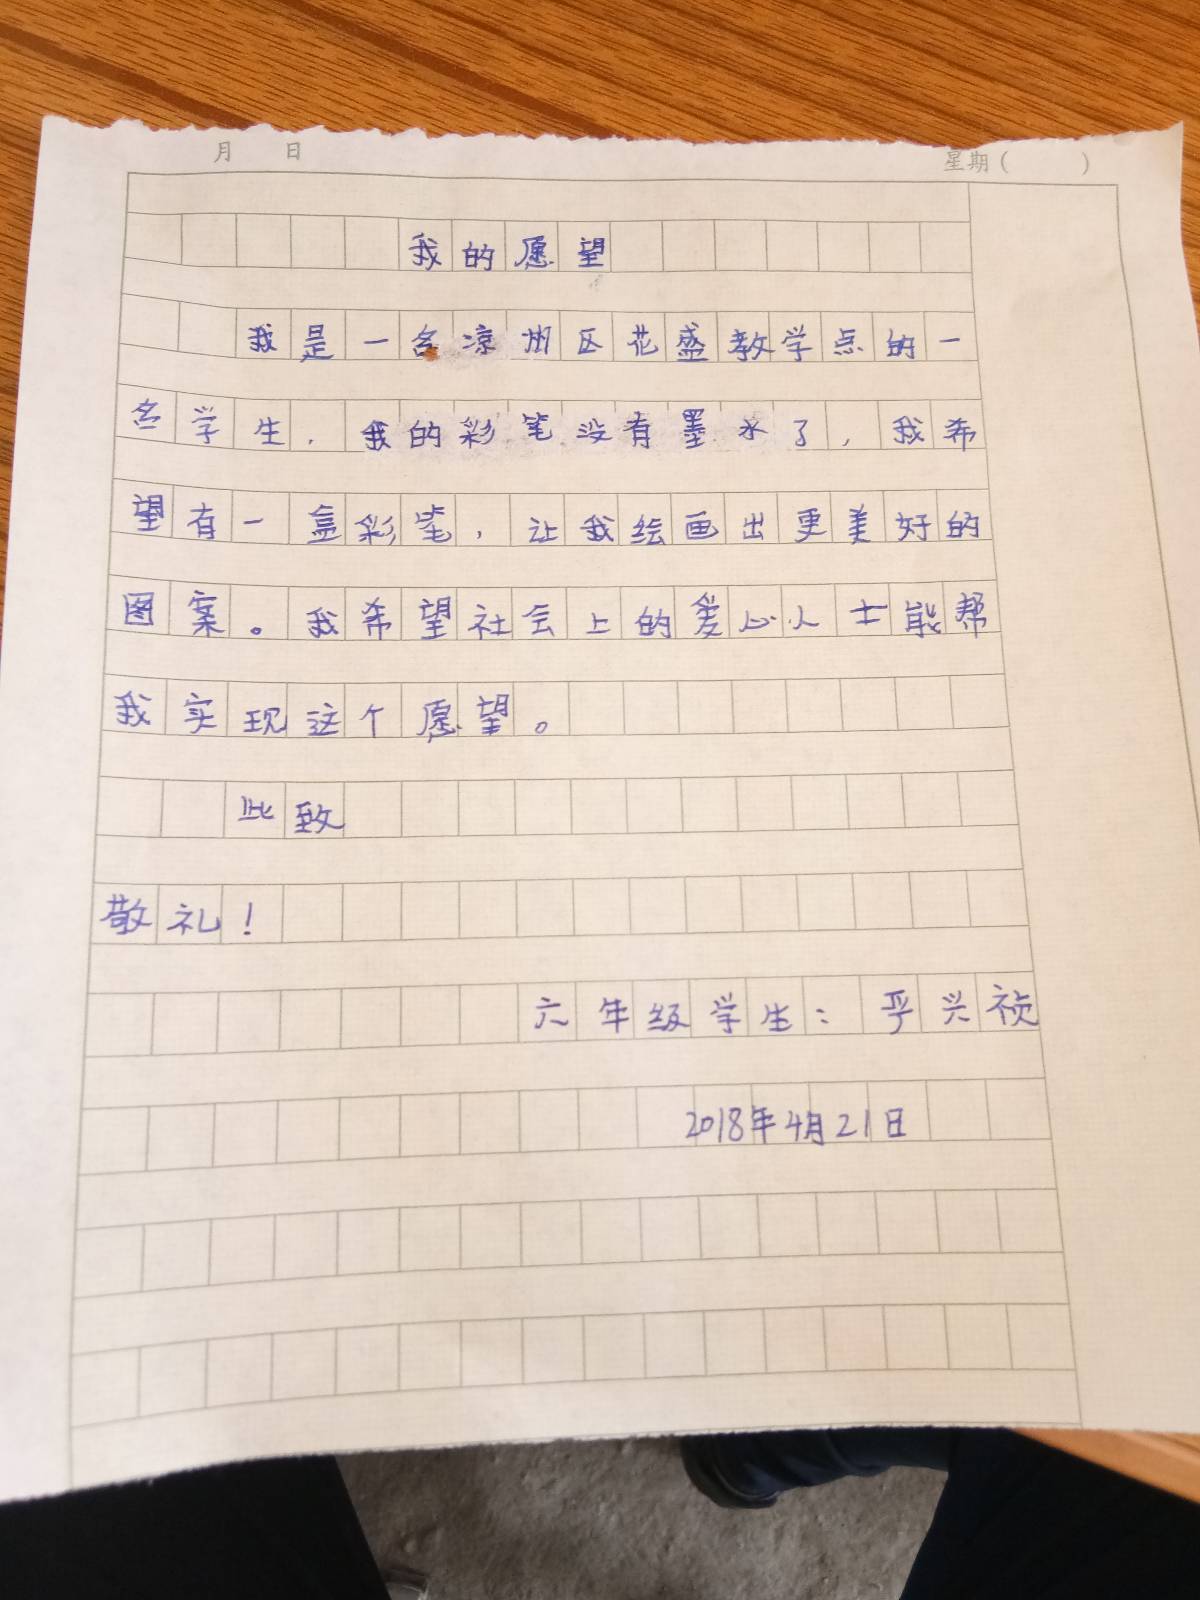 月 日 星期( )
我的愿望
我是一名凉州区花盛教学点的一
名学生,我的彩笔没有墨水了,我希
望有一盒彩笔,让我绘画出更美好的
图案。我希望社会上的爱心人士能帮
我实现这个愿望。
此致
敬礼!
六年级学生:兴祯
2018年4月21日